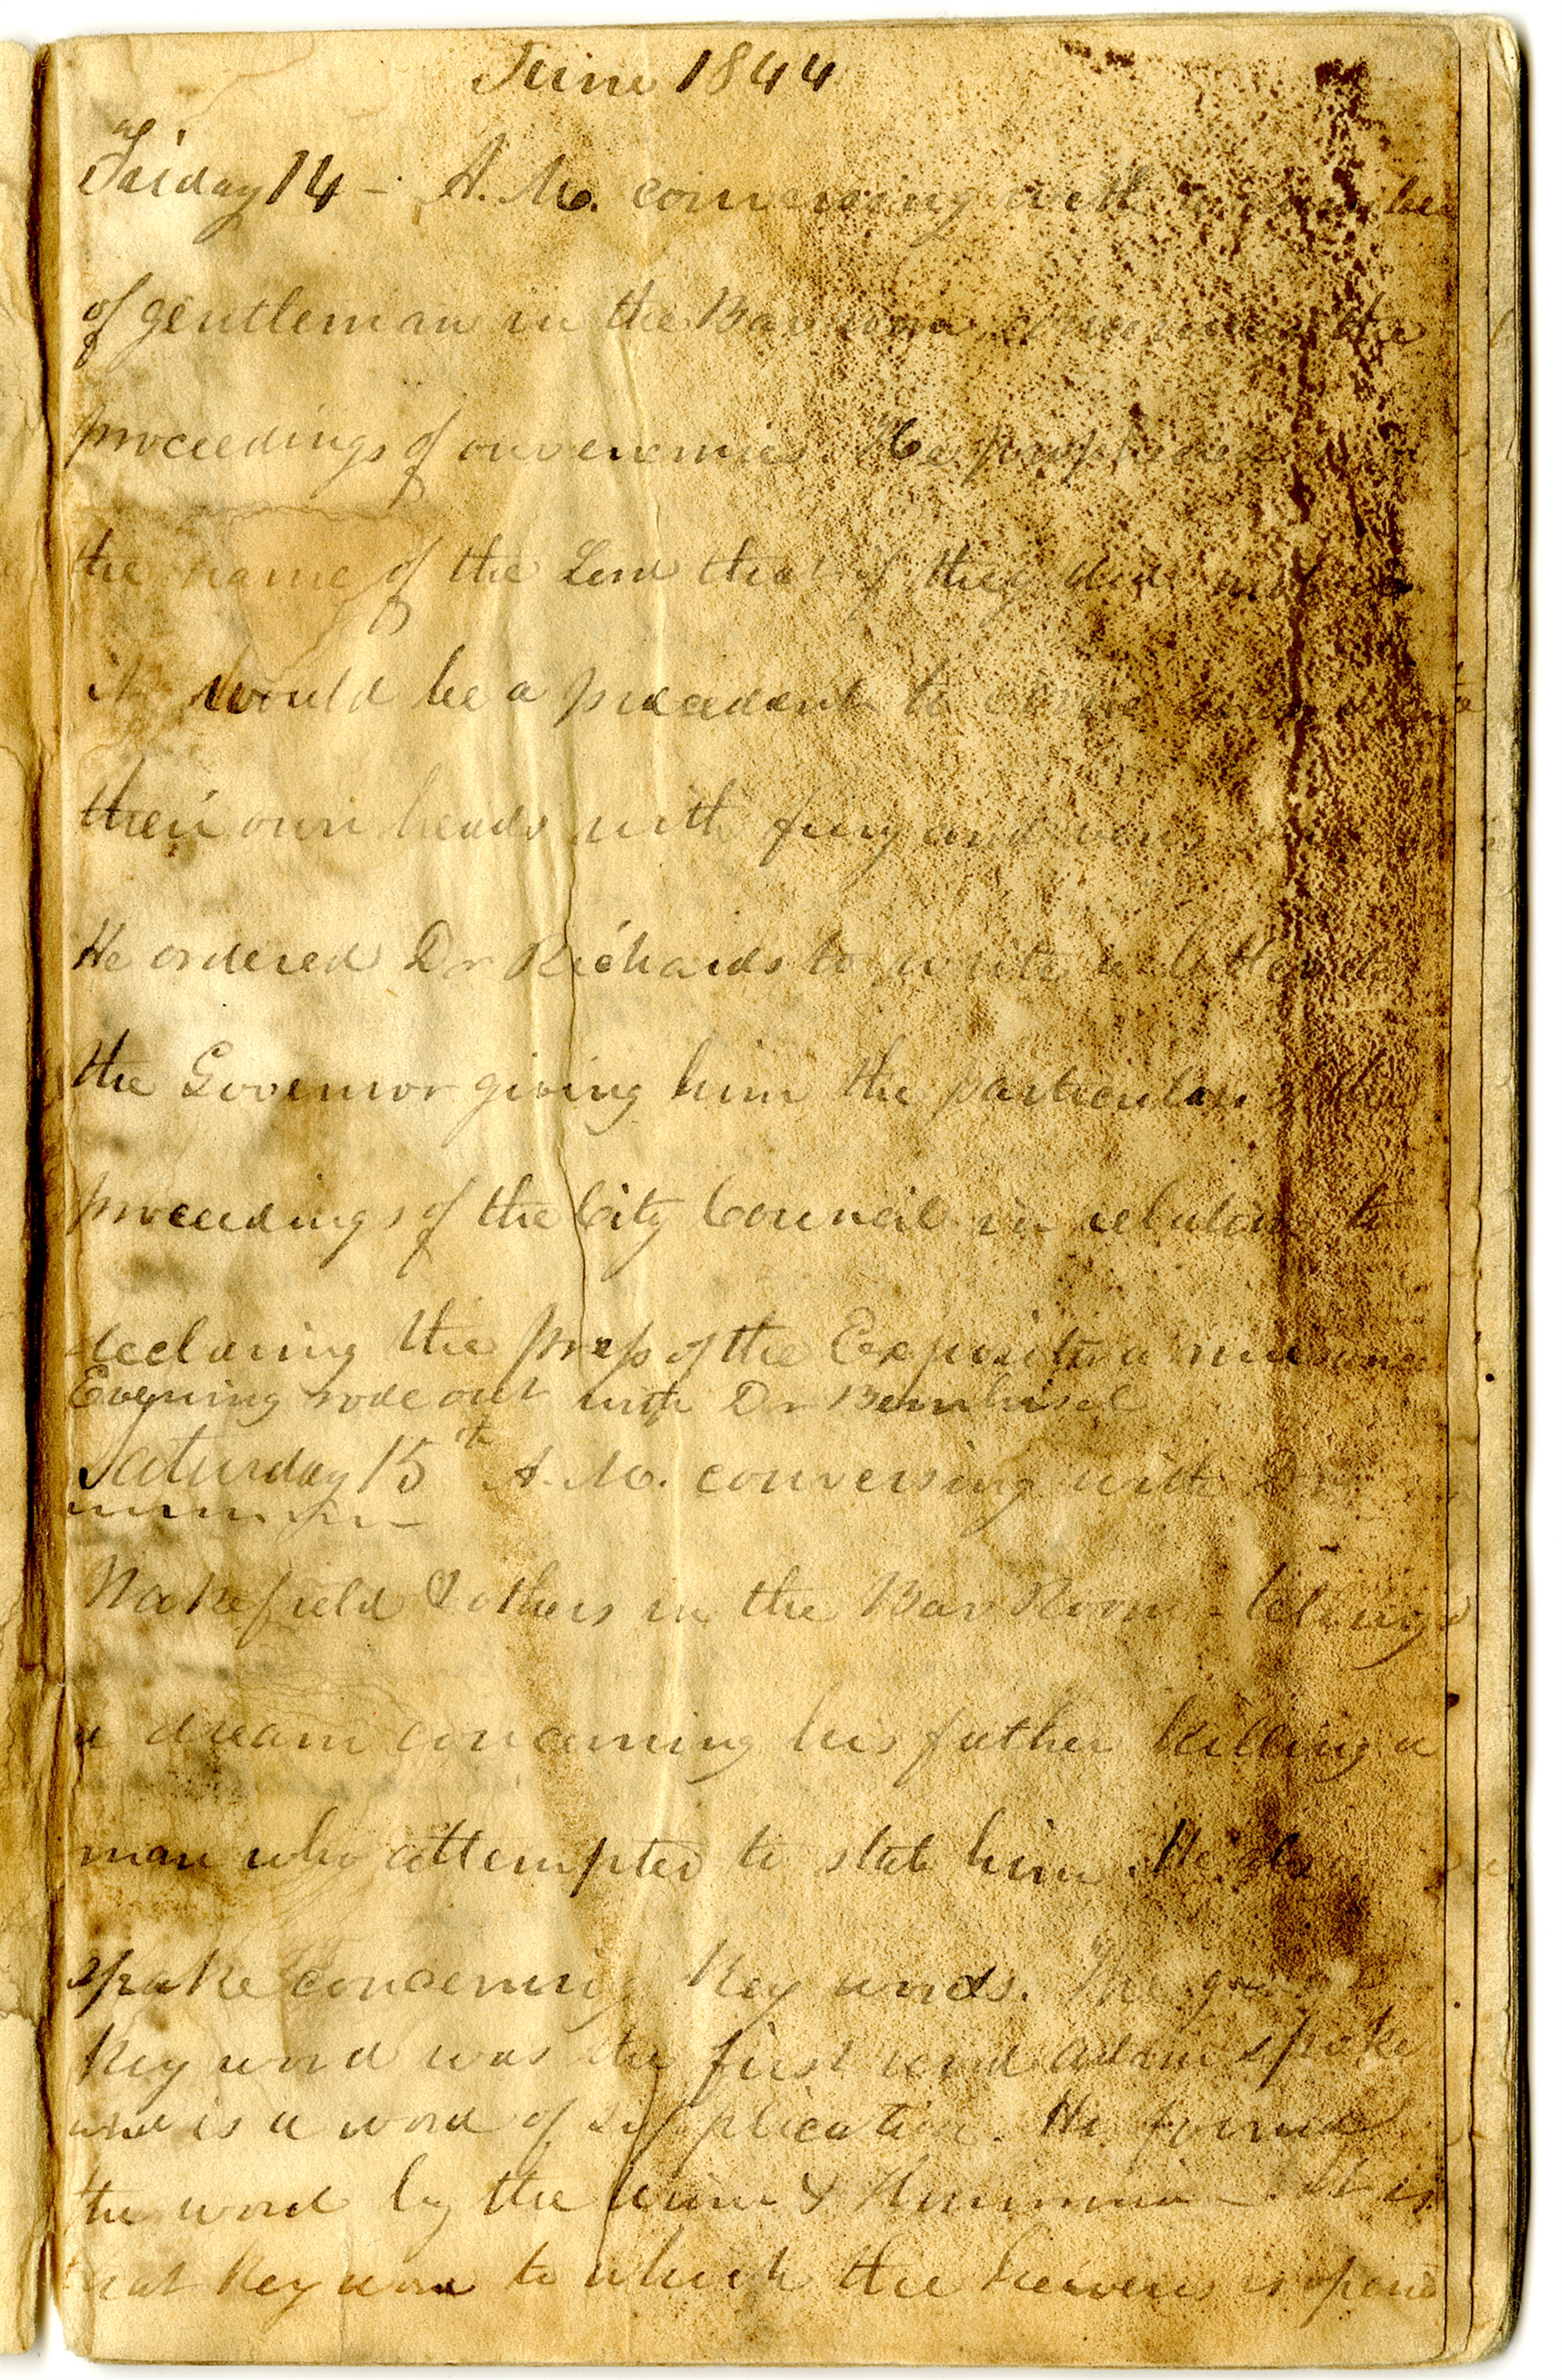 June 1844
Friday 14 - A.M. conversing with a number
of gentleman in the Bar room, concerning the
proceedings of our enemies. He prophecied
the name of the Lord that if they did not
it would be a precedent to come down
their own heads with fury and
He ordered Dr Richards to write a letter to
the Governor giving him the particulars of the
proceedings of the City Council in relation to
declaring the press of the Expositor a nuisance
Evening rode out with Dr Bernhisel
Saturday 15th A.M. conversing with Dr
Wakefield & others in the Bar Room - telling
a dream concerning his father killing a
man who attempted to stab him. He also
spake concerning key words. The
key word was the first word Adam spoke
and is a word of supplication. He found
the word by the Urim & Thummim - It is
that key word to which the heavens is opened